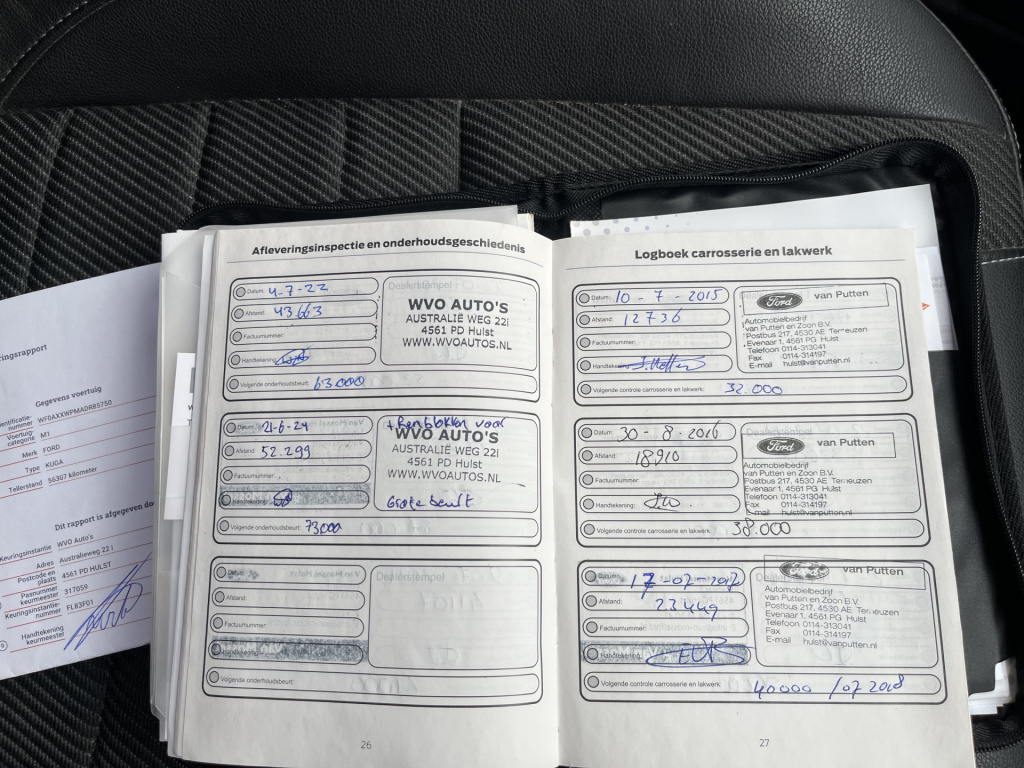 ringsrapport
Gegevens voertuig
WF0AXXWPMADR85750
Voertuig-
categorie M1
Merk FORD
Type KUGA
Tellerstand 56307 kilometer
Dit rapport is afgegeven doo
Keuringsinstantie WVO Auto's
Adres Australieweg 22 i
Postcode en
plaats 4561 PD HULST
Pasnummer
keurmeester 317059
Keuringsinstantie-
nummer FL83F01
Handtekening
keurmeester
Afleveringsinspectie en onderhoudsgeschiedenis
Datum: 4-7-22
Afstand: 43663
Factuurnummer:
Handtekening:
Volgende onderhoudsbeurt: 63000
Dealerstempel
WVO AUTO'S
AUSTRALIË WEG 22i
4561 PD Hulst
WWW.WVOAUTOS.NL
Datum: 21-6-24
Afstand: 52.299
Factuurnummer:
Handtekening:
Volgende onderhoudsbeurt: 73000
+ Remblokken voor
WVO AUTO'S
AUSTRALIË WEG 22i
4561 PD Hulst
WWW.WVOAUTOS.NL
Grote beurt
Datum:
Afstand:
Factuurnummer:
Handtekening:
Volgende onderhoudsbeurt:
Dealerstempel
26
Logboek carrosserie en lakwerk
Datum: 10 - 7 - 2015
Afstand: 12736
Factuurnummer:
Handtekening:
Volgende controle carrosserie en lakwerk: 32.000
Ford van Putten
Automobielbedrijf
van Putten en Zoon B.V.
Postbus 217, 4530 AE Terneuzen
Evenaar 1, 4561 PG Hulst
Telefoon 0114-313041
Fax 0114-314197
E-mail hulst@vanputten.nl
Datum: 30 - 8 - 2016
Afstand: 18910
Factuurnummer:
Handtekening:
Volgende controle carrosserie en lakwerk: 38.000
Ford van Putten
Automobielbedrijf
van Putten en Zoon B.V.
Postbus 217, 4530 AE Terneuzen
Evenaar 1, 4561 PG Hulst
Telefoon 0114-313041
Fax 0114-314197
E-mail hulst@vanputten.nl
Datum: 17-02-2017
Afstand: 23449
Factuurnummer:
Handtekening:
Volgende controle carrosserie en lakwerk: 40000 /07 2018
Ford van Putten
Automobielbedrijf
van Putten en Zoon B.V.
Postbus 217, 4530 AE Terneuzen
Evenaar 1, 4561 PG Hulst
Telefoon 0114-313041
Fax 0114-314197
E-mail hulst@vanputten.nl
27